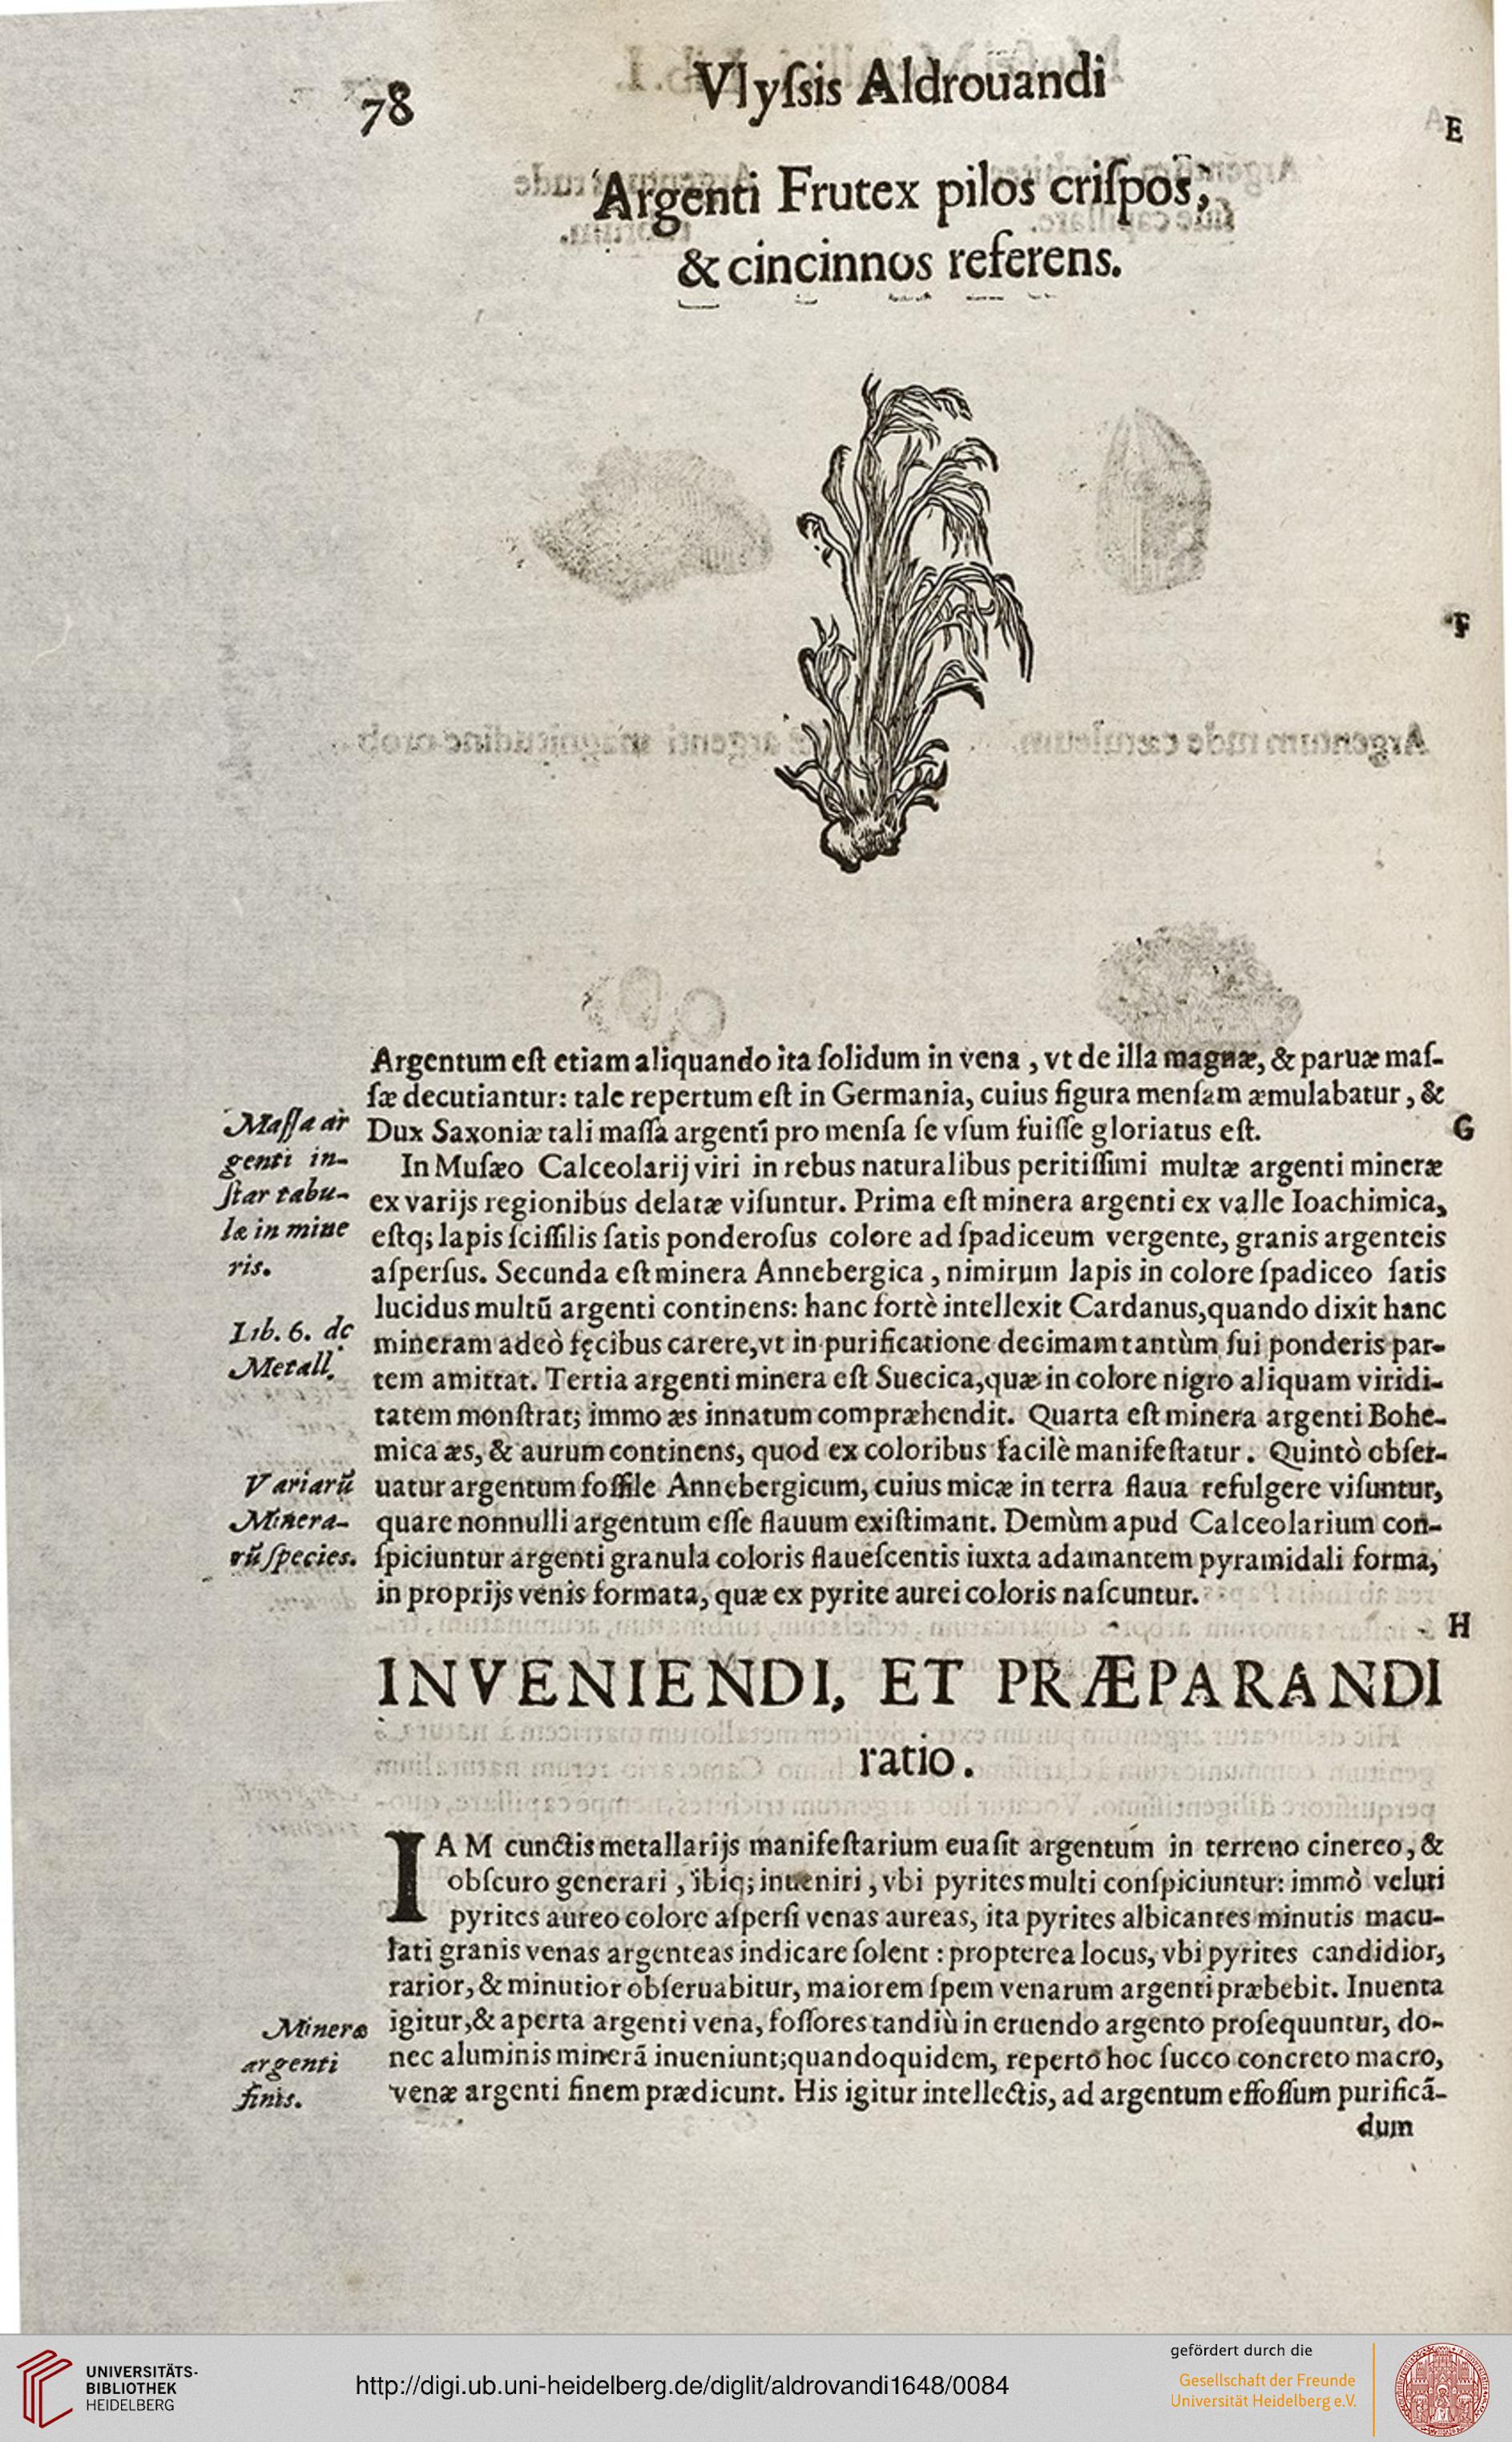 78
Vlyſsis Aldrouandi
E
Argenti Frutex pilos criſpos,
& cincinnos referens.
F
Argentum eſt etiam aliquando ita ſolidum in vena, vt de illa magnæ, & paruæ maſ-
ſæ decutiantur: tale repertum eſt in Germania, cuius figura menſam æmulabatur, &
Dux Saxoniæ tali maſſa argenti pro menſa ſe vſum fuiſſe gloriatus eſt.
G
Maſſa ar
genti in-
ſtar tabu-
læ in mine
ris.
In Muſæo Calceolarij viri in rebus naturalibus peritiſſimi multæ argenti mineræ
ex varijs regionibus delatæ viſuntur. Prima eſt minera argenti ex valle Ioachimica,
eſtq; lapis ſciſſilis ſatis ponderoſus colore ad ſpadiceum vergente, granis argenteis
aſperſus. Secunda eſt minera Annebergica, nimirum lapis in colore ſpadiceo ſatis
lucidus multū argenti continens: hanc fortè intellexit Cardanus, quando dixit hanc
Lib. 6. de
Metall.
mineram adeò fęcibus carere, vt in purificatione decimam tantùm ſui ponderis par-
tem amittat. Tertia argenti minera eſt Suecica, quæ in colore nigro aliquam viridi-
tatem monſtrat; immo æs innatum compræhendit. Quarta eſt minera argenti Bohe-
mica æs, & aurum continens, quod ex coloribus facilè manifeſtatur. Quintò obſer-
Variarū
Minera-
rū ſpecies.
uatur argentum foſſile Annebergicum, cuius micæ in terra flaua refulgere viſuntur,
quare nonnulli argentum eſſe flauum exiſtimant. Demùm apud Calceolarium con-
ſpiciuntur argenti granula coloris flaueſcentis iuxta adamantem pyramidali forma,
in proprijs venis formata, quæ ex pyrite aurei coloris naſcuntur.
H
INVENIENDI, ET PRÆPARANDI
ratio.
IAM cunctis metallarijs manifeſtarium euaſit argentum in terreno cinereo, &
obſcuro generari, ibiq; inueniri, vbi pyrites multi conſpiciuntur: immò veluti
pyrites aureo colore aſperſi venas aureas, ita pyrites albicantes minutis macu-
lati granis venas argenteas indicare ſolent: propterea locus, vbi pyrites candidior,
rarior, & minutior obſeruabitur, maiorem ſpem venarum argenti præbebit. Inuenta
Mineræ
argenti
finis.
igitur, & aperta argenti vena, foſſores tandiù in eruendo argento proſequuntur, do-
nec aluminis minerā inueniunt; quandoquidem, reperto hoc ſucco concreto macro,
venæ argenti finem prædicunt. His igitur intellectis, ad argentum effoſſum purificā-
dum
UNIVERSITÄTS-
BIBLIOTHEK
HEIDELBERG
http://digi.ub.uni-heidelberg.de/diglit/aldrovandi1648/0084
gefördert durch die
Gesellschaft der Freunde
Universität Heidelberg e.V.